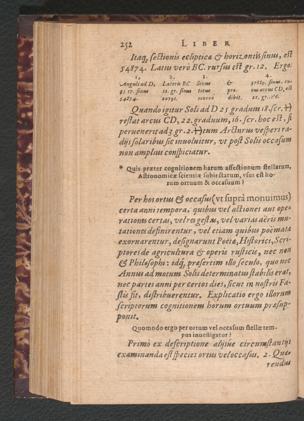 252 LIBER
Itaq, sectionis eclipticæ & horizontis sinus, est
54874. Latus verò BC. rursus est gr. 12. Ergo:
1. 2. 3. 4.
Anguli ad D, Lateris BC Sinus & 
33. 17. sinus 12. gr. sinus totus. pro- tus arcus CD, est
54874. venit
Quando igitur Solis ad D 25 gradum 18. scr.
restat arcus CD, 22. graduum, 16. scr. hoc est, si
pervenerit ad 3 gr. 2. tum Arcturus vesperi ra-
dijs solaribus sic involvitur, ut post Solis occasum
non amplius conspiciatur.
* Quis præter cognitionem harum affectionum stellarum,
Astronomicæ scientiæ subiectarum, usus est ho-
rum ortuum & occasuum?
Per hos ortus & occasus (ut suprà monuimus)
certa anni tempora, quibus vel actiones aut ope-
rationes certas, vel res gestas, vel varias aëris mu-
tationes definirentur, vel etiam quibus poëmata
exornarentur, designarunt Poëtæ, Historici, Scri-
ptores de agricultura & operis rusticis, nec non
& Philosophi: idq, præsertim illo seculo, quo nec
Annus ad motum Solis determinatus stabilis erat,
nec partes anni per certos dies, sicut in nostris Fa-
stis fit, distribuerentur. Explicatio ergo illorum
scriptorum cognitionem horum ortuum præsup-
ponit.
Quomodo ergo per ortum vel occasum stellæ tem-
pus investigatur?
Primò ex descriptione alijsue circumstantijs
examinanda est species ortus vel occasus. 2. Quæ-
rendus